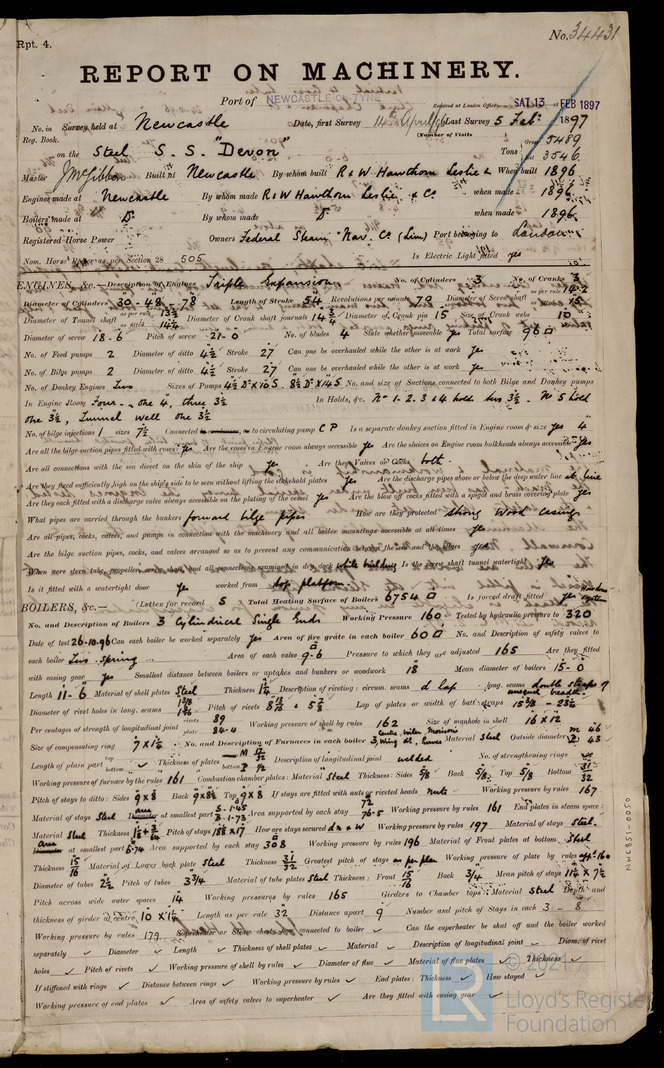 Rpt. 4.
No. 34431
REPORT ON MACHINERY.
Port of NEWCASTLE-ON-TYNE
Received at London Office SAT. 13 FEB 1897
No. in Survey held at Newcastle Date, first Survey 14th April /96 Last Survey 5 Feb: 1897
Reg. Book. (Number of Visits
on the Steel S. S. "Devon" Tons Gross 5489 Net 3546
Master Built at Newcastle By whom built R & W Hawthorn Leslie & Co When built 1896
Engines made at Newcastle By whom made R & W Hawthorn Leslie & Co when made 1896
Boilers made at Do By whom made Do when made 1896
Registered Horse Power Owners Federal Steam Nav. Co (Lim) Port belonging to London
Nom. Horse Power as per Section 28 505 Is Electric Light fitted yes
ENGINES, &c.— Description of Engines Triple Expansion No. of Cylinders 3 No. of Cranks 3
Diameter of Cylinders 30 - 48 - 78 Length of Stroke 54 Revolutions per minute 70 Diameter of Screw shaft as per rule 14.2 15
Diameter of Tunnel shaft as per rule 13 1/2 as fitted 14 1/4 Diameter of Crank shaft journals 14 3/4 Diameter of Crank pin 15 Size of Crank webs 10
Diameter of screw 18.6 Pitch of screw 21-0 No. of blades 4 State whether moveable yes Total surface 96 □
No. of Feed pumps 2 Diameter of ditto 4 1/2 Stroke 27 Can one be overhauled while the other is at work yes
No. of Bilge pumps 2 Diameter of ditto 4 1/2 Stroke 27 Can one be overhauled while the other is at work yes
No. of Donkey Engines Two Sizes of Pumps 4 1/2 D x 10 S. 8 1/2 D x 14 S No. and size of Suctions connected to both Bilge and Donkey pumps
In Engine Room Four - one 4, three 3 1/2 In Holds, &c. No 1-2-3 & 4 hold two 3 1/2. No 5 hold
one 3 1/2, Tunnel well one 3 1/2
No. of bilge injections 1 sizes 7 1/2 Connected to circulating pump C P Is a separate donkey suction fitted in Engine room & size yes 4
Are all the bilge suction pipes fitted with roses yes Are the roses in Engine room always accessible yes Are the sluices on Engine room bulkheads always accessible yes
Are all connections with the sea direct on the skin of the ship yes Are they Valves or Cocks both
Are they fixed sufficiently high on the ship's side to be seen without lifting the stokehold plates yes Are the discharge pipes above or below the deep water line at line
Are they each fitted with a discharge valve always accessible on the plating of the vessel yes Are the blow off cocks fitted with a spigot and brass covering plate yes
What pipes are carried through the bunkers forward bilge pipes How are they protected strong wood casing
Are all pipes, cocks, valves, and pumps in connection with the machinery and all boiler mountings accessible at all times yes
Are the bilge suction pipes, cocks, and valves arranged so as to prevent any communication between the sea and the bilges yes
When were stern tube, propeller, screw shaft, and all connections examined in dry dock while building Is the screw shaft tunnel watertight yes
Is it fitted with a watertight door yes worked from top platform
BOILERS, &c.— (Letter for record S ) Total Heating Surface of Boilers 6754 □ Is forced draft fitted yes Howdens system
No. and Description of Boilers 3 Cylindrical Single Ends Working Pressure 160 Tested by hydraulic pressure to 320
Date of test 26-10-96 Can each boiler be worked separately yes Area of fire grate in each boiler 60 □ No. and Description of safety valves to
each boiler Two spring Area of each valve 9.6 Pressure to which they are adjusted 165 Are they fitted
with easing gear yes Smallest distance between boilers or uptakes and bunkers or woodwork 18 Mean diameter of boilers 15-0
Length 11-6 Material of shell plates Steel Thickness 1 1/4 Description of riveting: circum. seams d lap long. seams double straps of unequal breadth
Diameter of rivet holes in long. seams Pitch of rivets Lap of plates or width of butt straps
Per centages of strength of longitudinal joint rivets 89 plate 84.4 Working pressure of shell by rules 162 Size of manhole in shell 16 x 12
Size of compensating ring 7 x 1 1/4 No. and Description of Furnaces in each boiler 3, centre boiler Morison Material Steel Outside diameter M 46 P 43
Length of plain part top bottom Thickness of plates Description of longitudinal joint welded No. of strengthening rings
Working pressure of furnace by the rules 161 Combustion chamber plates: Material Steel Thickness: Sides 5/8 Back 5/8 Top 5/8 Bottom 31/32
Pitch of stays to ditto: Sides 9 x 8 Back 9 x 8 1/2 Top 9 x 8 If stays are fitted with nuts or riveted heads nuts Working pressure by rules 167
Material of stays Steel area at smallest part S. 1.45 B. 1.73 Area supported by each stay 72 76.5 Working pressure by rules 161 End plates in steam space:
Material Steel Thickness Pitch of stays 18 1/8 x 17 How are stays secured d n & w Working pressure by rules 197 Material of stays Steel
area at smallest part 6.74 Area supported by each stay 308 Working pressure by rules 196 Material of Front plates at bottom Steel
Thickness 15/16 Material of Lower back plate Steel Thickness 31/32 Greatest pitch of stays as per plan Working pressure of plate by rules 160
Diameter of tubes 2 1/2 Pitch of tubes 3 3/4 Material of tube plates Steel Thickness: Front 15/16 Back 3/4 Mean pitch of stays 11 1/4 x 7 1/2
Pitch across wide water spaces 14 Working pressures by rules 165 Girders to Chamber tops: Material Steel Depth and
thickness of girder at centre 10 x 1 1/2 Length as per rule 32 Distance apart 9 Number and pitch of Stays in each 3 - 8
Working pressure by rules 179 Superheater or Steam chest; how connected to boiler ✓ Can the superheater be shut off and the boiler worked
separately ✓ Diameter ✓ Length ✓ Thickness of shell plates ✓ Material ✓ Description of longitudinal joint ✓ Diam. of rivet
holes ✓ Pitch of rivets ✓ Working pressure of shell by rules ✓ Diameter of flue ✓ Material of flue plates ✓ Thickness ✓
If stiffened with rings ✓ Distance between rings ✓ Working pressure by rules ✓ End plates: Thickness ✓ How stayed ✓
Working pressure of end plates ✓ Area of safety valves to superheater ✓ Are they fitted with easing gear ✓
NWC851-0050
LR
© 2021
Lloyd's Register
Foundation